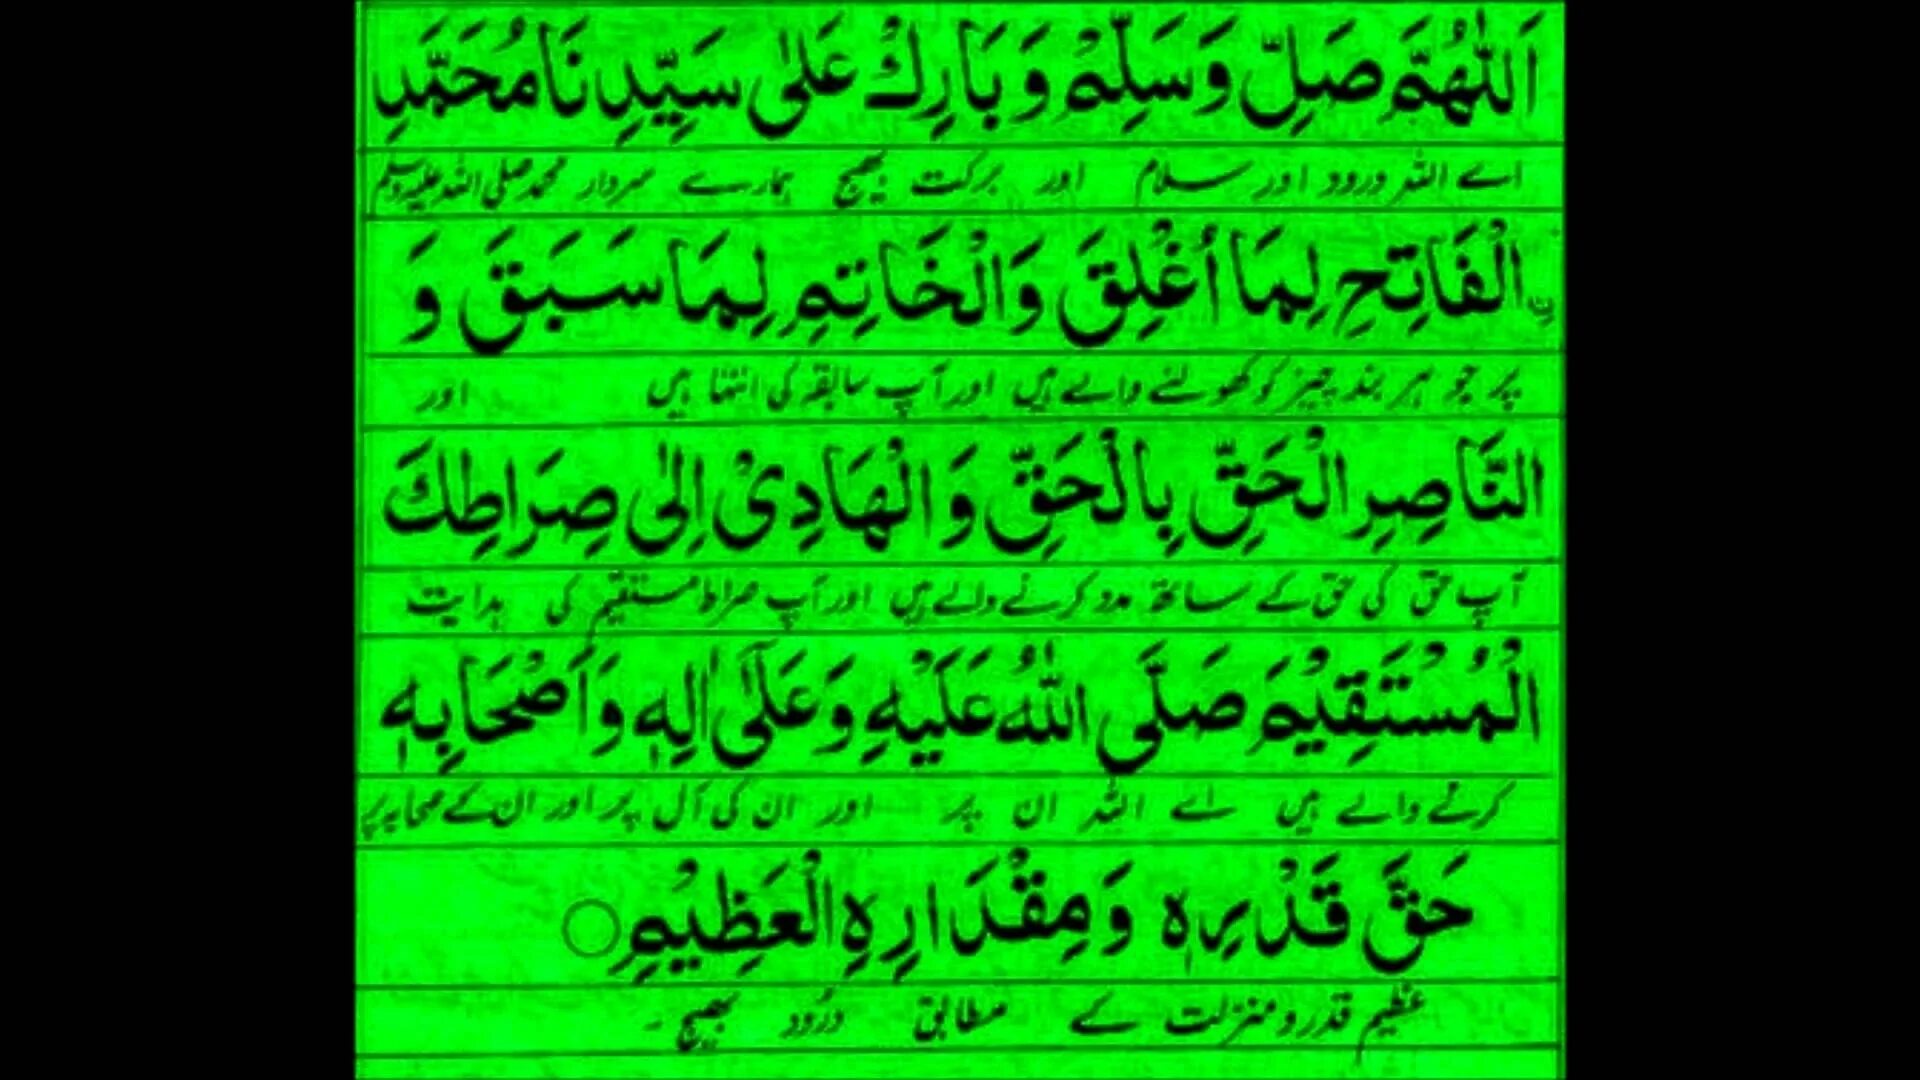 اَللّٰهُمَّ صَلِّ وَسَلِّمْ وَبَارِكْ عَلٰى سَيِّدِنَا مُحَمَّدِ
اے اللہ درود اور سلام اور برکت بھیج ہمارے سردار محمد صلی اللہ علیہ وسلم
نِ الْفَاتِحِ لِمَا أُغْلِقَ وَالْخَاتِمِ لِمَا سَبَقَ وَ
پر جو ہر بند چیز کو کھولنے والے ہیں اور آپ سابقہ کی انتہا ہیں اور
النَّاصِرِ الْحَقِّ بِالْحَقِّ وَالْهَادِىْ اِلٰى صِرَاطِكَ
آپ حق کی حق کے ساتھ مدد کرنے والے ہیں اور آپ صراط مستقیم کی ہدایت
الْمُسْتَقِيْمَ صَلَّى اللّٰهُ عَلَيْهِ وَعَلٰٓى اٰلِهٖ وَاَصْحَابِهٖ
کرنے والے ہیں اے اللہ ان پر اور ان کی آل پر اور ان کے صحابہ پر
حَقَّ قَدْرِهٖ وَمِقْدَارِهِ الْعَظِيْمِ
عظیم قدر و منزلت کے مطابق درُود بھیج ۔